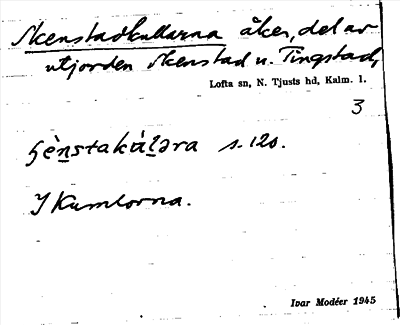 Skenstadkullarna åker, del av
utjorden Skenstad u. Tingstad,
Lofta sn, N. Tjusts hd, Kalm. l.
3
s. 120.
I Kumlorna.
Ivar Modéer 1945